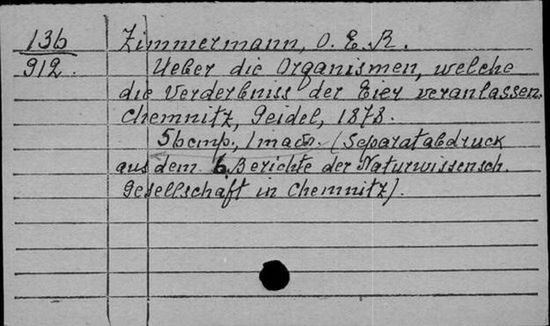 136 Zimmermann, O. E. R.
912. Ueber die Organismen, welche
die Verderbniss der Eier veranlassen.
Chemnitz, Geidel, 1878.
5 стр., 1 табл. (Separatabdruck
aus dem 6. Berichte der Naturwissensch.
Gesellschaft in Chemnitz).